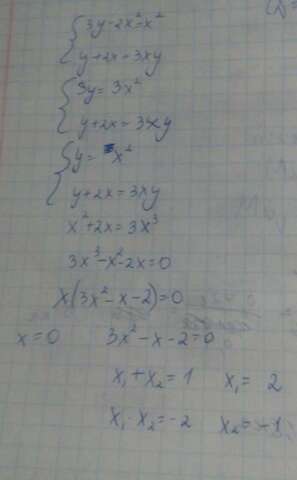 {3y-2x²=x²
{y+2x=3xy
{3y=3x²
{y+2x=3xy
{y=x²
{y+2x=3xy
x²+2x=3x³
3x³-x²-2x=0
x(3x²-x-2)=0
x=0 3x²-x-2=0
x₁+x₂=1 x₁=2
x₁·x₂=-2 x₂=-1